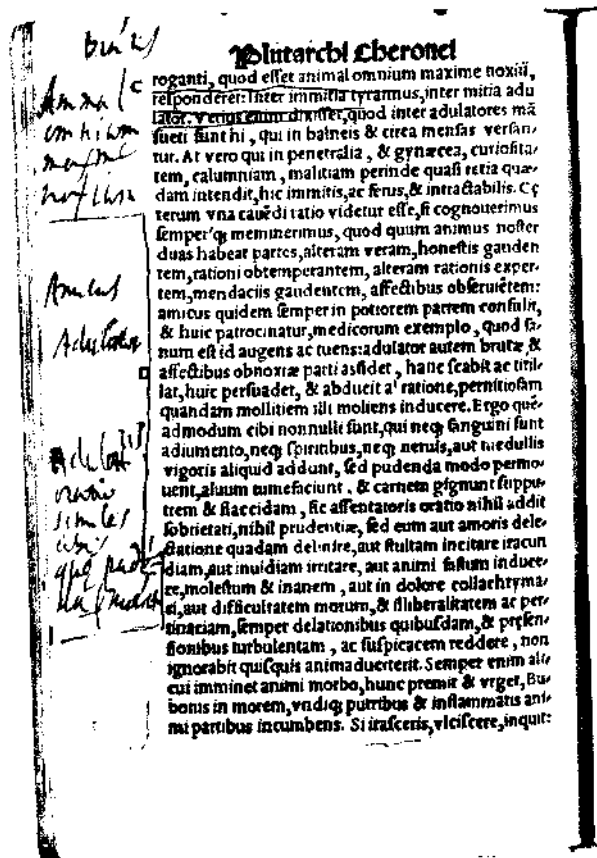 Plutarchi Cheronei
roganti, quod eſſet animal omnium maxime noxiū,
reſponderet: Inter immitia tyrannus, inter mitia adu
lator. Verius enim dixiſſet, quod inter adulatores mā
ſueti ſunt hi, qui in balneis & circa menſas verſan-
tur. At vero qui in penetralia, & gynæcea, curioſita-
tem, calumniam, malitiam perinde quaſi retia quæ-
dam intendit, hic immitis, ac ferus, & intractabilis. Cę
terum vna cauēdi ratio videtur eſſe, ſi cognouerimus
ſemper'q; meminerimus, quod quum animus noſter
duas habeat partes, alteram veram, honeſtis gauden
tem, rationi obtemperantem, alteram rationis exper-
tem, mendaciis gaudentem, affectibus obſeruiētem:
amicus quidem ſemper in potiorem partem conſulit,
& huic patrocinatur, medicorum exemplo, quod ſa-
num eſt id augens ac tuens: adulator autem brutæ &
affectibus obnoxiæ parti aſſidet, hanc ſcabit ac titil-
lat, huic perſuadet, & abducit a' ratione, pernitioſam
quandam mollitiem illi moliens inducere. Ergo quē-
admodum cibi nonnulli ſunt, qui neq; ſanguini ſunt
adiumento, neq; ſpiritibus, neq; neruis, aut medullis
vigoris aliquid addunt, ſed pudenda modo permo-
uent, aluum tumefaciunt, & carnem gignunt ſuppu-
trem & flaccidam, ſic aſſentatoris oratio nihil addit
ſobrietati, nihil prudentiæ, ſed eum aut amoris dele-
ctatione quadam delinire, aut ſtultam incitare iracun
diam, aut inuidiam irritare, aut animi faſtum induce-
re, moleſtum & inanem, aut in dolore collachryma-
ri, aut difficultatem morum, & illiberalitatem ac per-
tinaciam, ſemper delationibus quibuſdam, & præſen-
ſionibus turbulentam, ac ſuſpicacem reddere, non
ignorabit quiſquis animaduerterit. Semper enim ali-
cui imminet animi morbo, hunc premit & vrget, Bu-
bonis in morem, vndiq; putribus & inflammatis ani-
mi partibus incumbens. Si iraſceris, vlciſcere, inquit:
Amicus
Adulator
oratio
similes
cibis